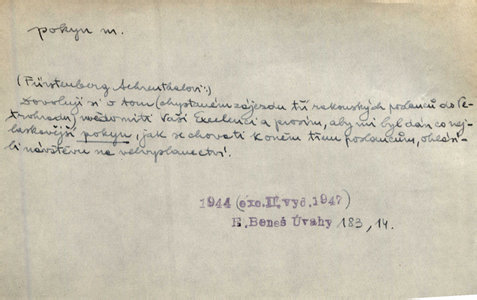 pokyn m.
(Fürstenberg Aehrenthalovi:)
Dovoluji si o tom (chystaném zájezdu tří rakouských poslanců do Pe-
trohradu) uvědomiti Vaši Excelenci a prosím, aby mi byl dán co nej-
laskavější pokyn, jak se chovati k oněm třem poslancům, ohlásí-
li návštěvu na velvyslanectví.
1944 (exc. II. vyd. 1947)
E. Beneš Úvahy 183, 14.